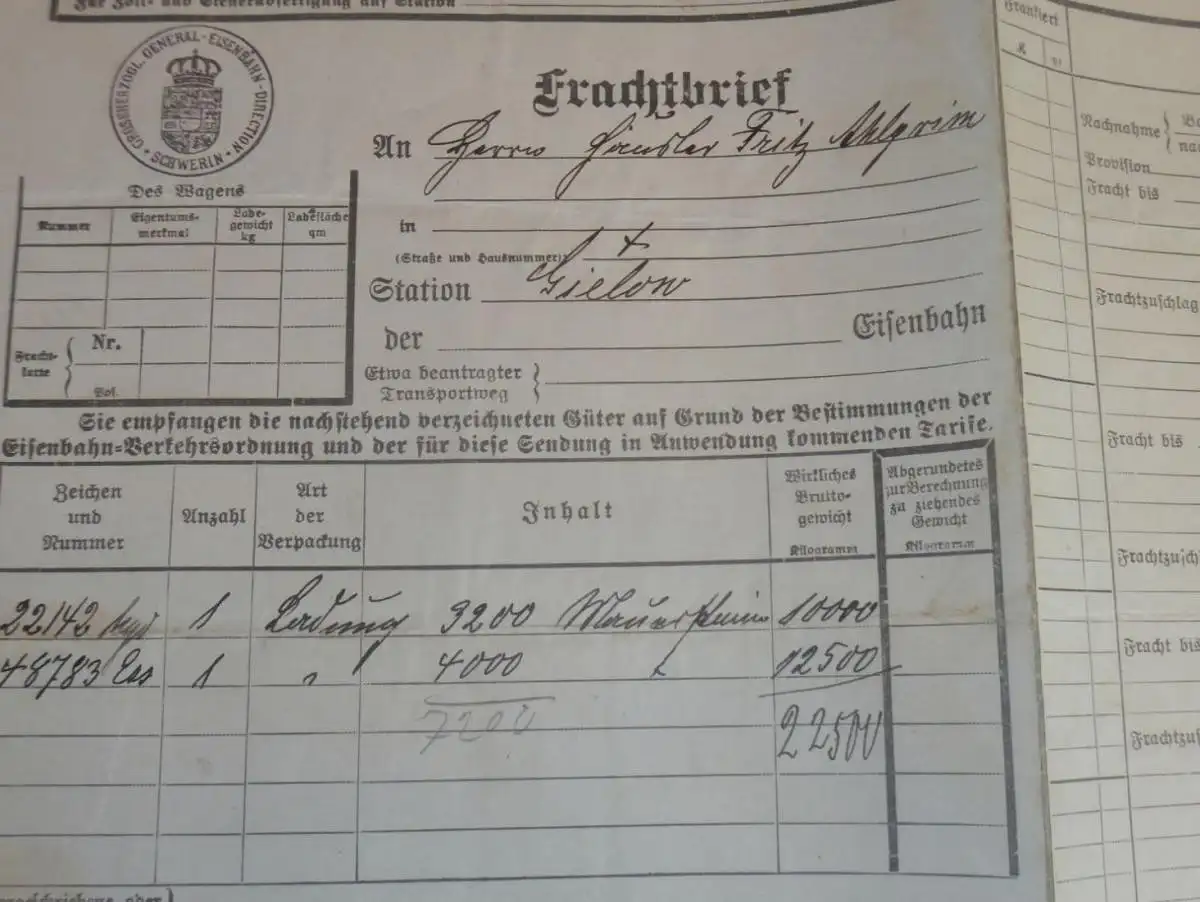 Für Zoll- und Steuerabfertigung auf Station
GROSSHERZOGL. GENERAL-EISENBAHN-DIRECTION
SCHWERIN
Frachtbrief
An Herrn Häusler Fritz Ahlgrim
in
(Straße und Hausnummer)
Station Gielow
der Eisenbahn
Etwa beantragter
Transportweg
Des Wagens
Nummer Eigentums-merkmal Lade-gewicht kg Ladefläche qm
Fracht-karte Nr.
Pos.
Sie empfangen die nachstehend verzeichneten Güter auf Grund der Bestimmungen der
Eisenbahn-Verkehrsordnung und der für diese Sendung in Anwendung kommenden Tarife.
Zeichen und Nummer Anzahl Art der Verpackung Inhalt Wirkliches Brutto-gewicht Kilogramm Abgerundetes zur Berechnung zu ziehendes Gewicht Kilogramm
22142 1 Ladung 3200 Mauersteine 10000
48783 Ess 1 " 4000 " 12500
7200 22500
Frankiert
Nachnahme
Provision
Fracht bis
Frachtzuschlag
Fracht bis
Fracht bis